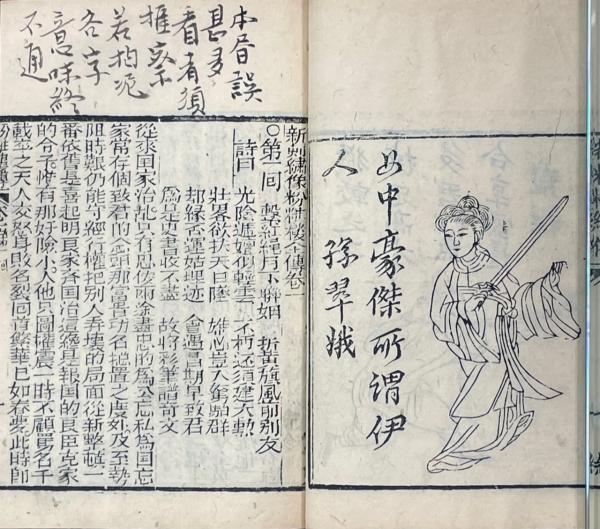 女中豪傑所謂伊
人　孫翠娥
本書誤
甚多
看者須
推察
若拘泥
各字
意味終
不通
新刻繡像粉粧樓全傳卷一
○第一回　繫紅繩月下聯姻　折黃旗風前別友
詩曰　光陰遞嬗似輕雲　不朽还須建大勳
壯畧欲扶天日墜　雄心豈入駑駘群
却緣否運姑埋迹　會遇昌期早致君
為是史書收不盡　故將彩筆譜奇文
從來国家治乱只有忠佞兩途盡忠的為公忘私為国忘
家常存個致君的念頭那富貴功名摠置之度外及至勢
阻時艱仍能守經行權把別人弄壞的局面從新整頓一
番依舊是喜起明良家齐国治這總是報国的良臣克家
的令子惟有那奸險小人他只圖權震一時不顧罵名千
載卒之天人交怒身敗名裂回首繁華已如春夢此時即